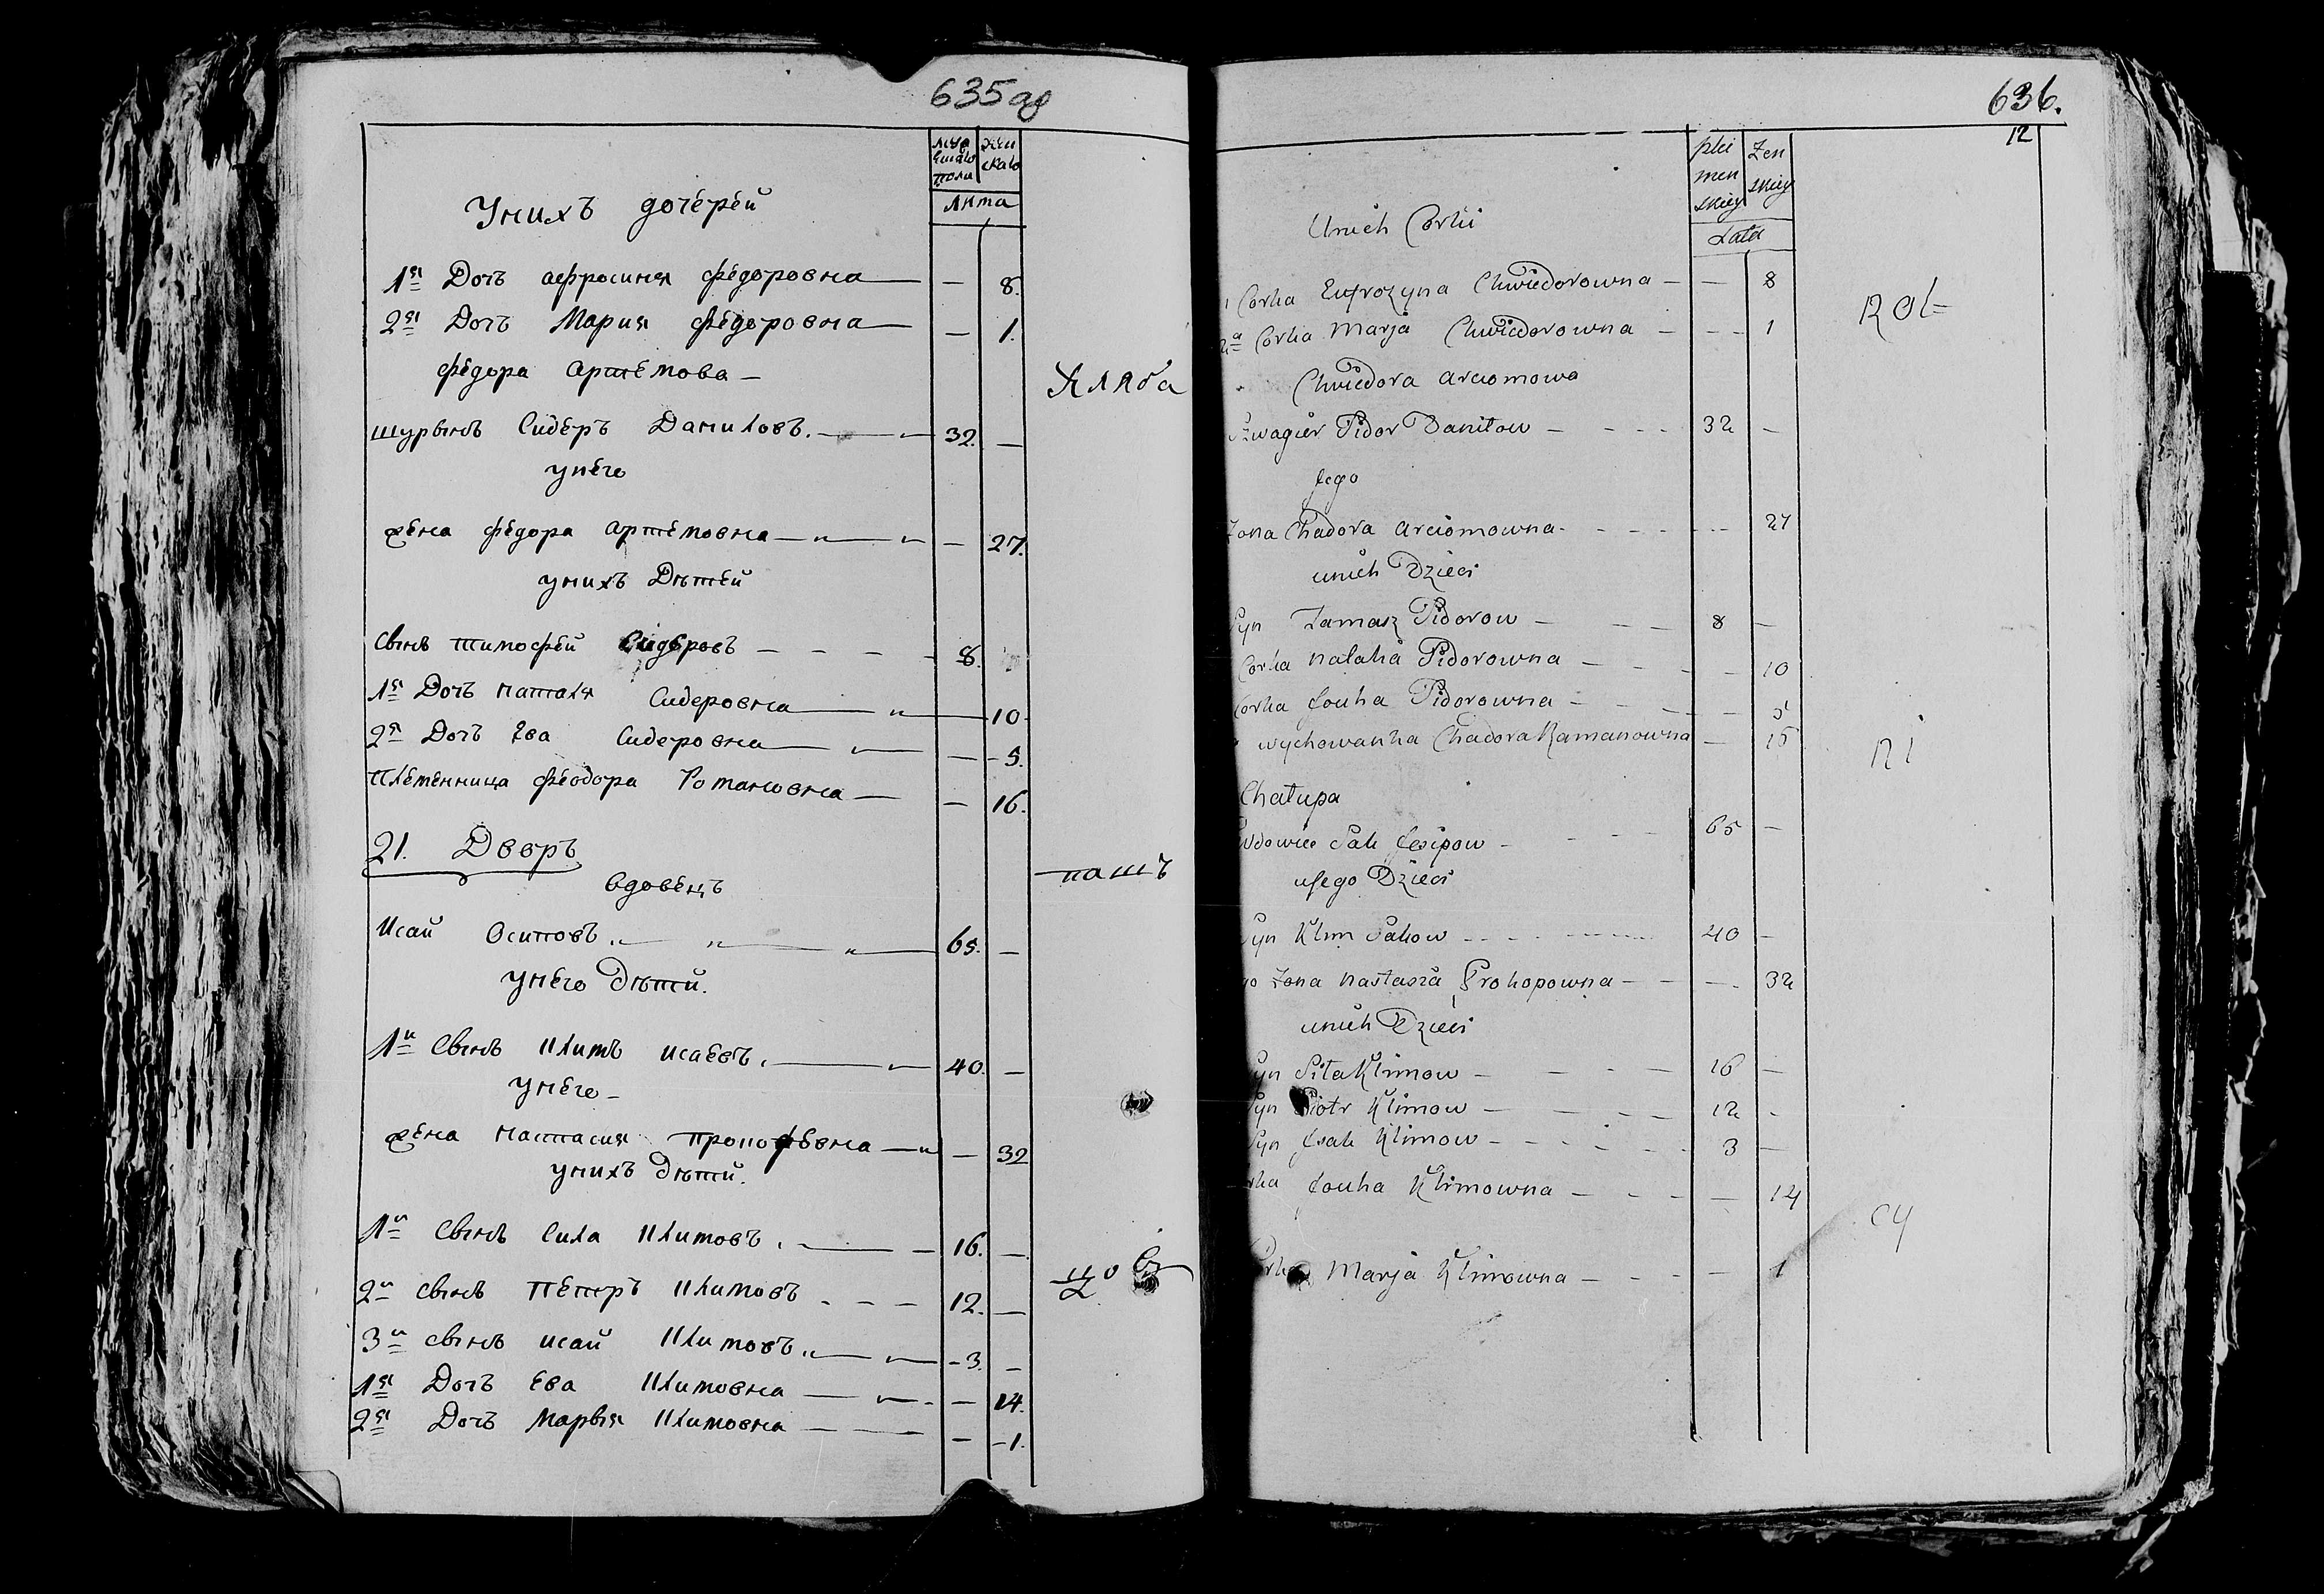 635 об
муж
ескаго
пола
жен
скаго
Лѣта
Унихъ дочерей
1я Дочь афросиня федоровна — 8.
2я Дочь Мария федоровна — 1.
федора артемова —
шурынъ Сидеръ Даниловъ. 32. —
унего
жена федора артемовна — 27.
унихъ Дѣтей
сынъ тимофей Сидеровъ — 8.
1я Дочь наталя Сидеровна — 10
2я Дочь Ева Сидеровна — 5.
племенница феодора Романовна — 16.
21. Дворъ
вдовецъ
Исай Осиповъ. 65. —
унего Дѣти.
1й Сынъ Климъ исаевъ. 40. —
унего —
жена настасия прокофьевна — 32
унихъ дѣти.
1й Сынъ Сила Климовъ. 16. —
2й сынъ Петръ Климовъ 12. —
3й сынъ исай Климовъ. 3. —
1я Дочь Ева Климовна — 14.
2я Дочь марья Климовна — 1.
636.
12
plci
men
skiey
Zen
skiey
Lata
Unich Corki
1 Corka Eufrozyna Chwiedorowna — — 8
2a Corka Marja Chwiedorowna — — 1
Chwiedora Arciomowa
Szwagier Sidor Daniłow — 32 —
Jego
Zona Chadora Arciomowna — 27
unich Dzieci
Syn Tamasz Sidorow — 8 —
Corka Natalia Sidorowna — 10
Corka Jeuha Sidorowna — 5
wychowanka Chadora Ramanowna — 15
Chałupa
Wdowiec Sak Jesipow — 65 —
uJego Dzieci
Syn Klim Sakow 40 —
Zona Nastazia Prokopowna — 32
unich Dzieci
Syn Siła Klimow — 16 —
Syn Piotr Klimow — 12 -
Syn Jsak Klimow — 3 —
Jeuha Klimowna — 14
Marja Klimowna — 1